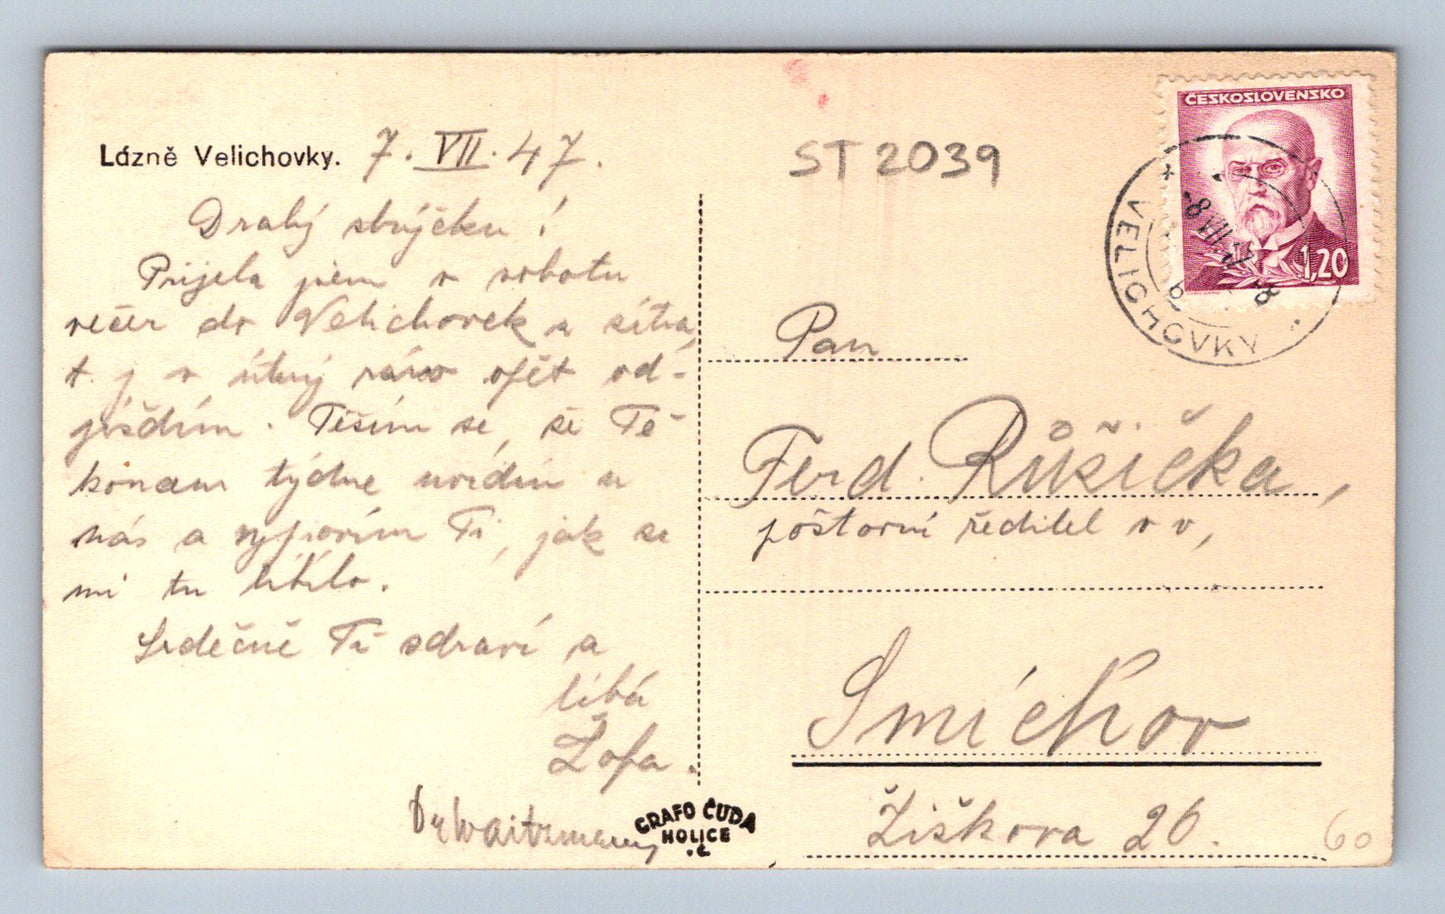 Lázně Velichovky. 7. VII. 47.
Drahý strýčku!
Přijela jsem v sobotu
večer do Velichovek a zítra,
t. j. v úterý ráno opět od-
jíždím. Těším se, že Tě
koncem týdne uvidím u
nás a vypovím Ti, jak se
mi tu líbilo.
Srdečně Tě zdraví a
líbá
Žofa.
Dr Waitzmann
GRAFO ČUDA
HOLICE
v.Č.
ST 2039
ČESKOSLOVENSKO
1,20
VELICHOVKY
-8.VII.47-8
b
Pan
Ferd. Růžička,
poštovní ředitel v v,
Smíchov
Žižkova 26.
60